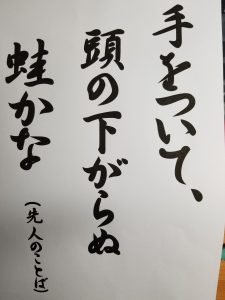 手をついて、
頭の下がらぬ
蛙かな
（先人のことば）